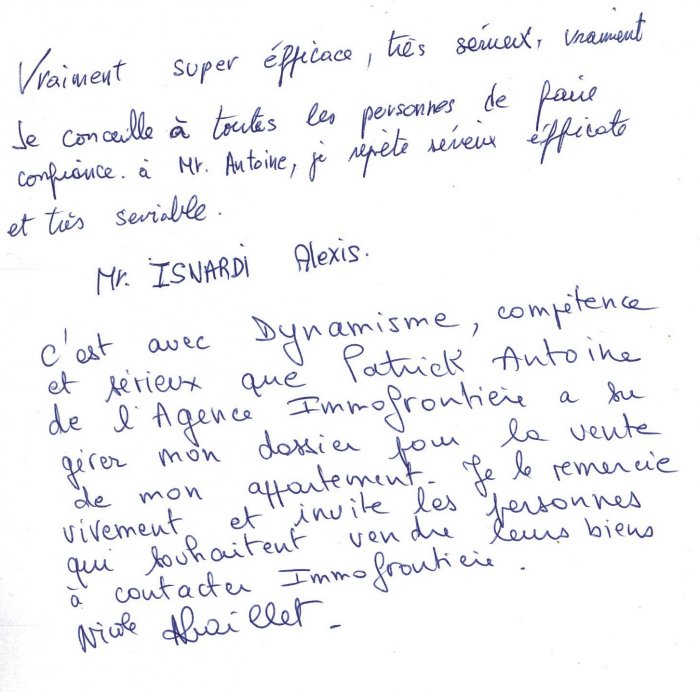 Vraiment super éfficace, très sérieux, vraiment
Je conceille à toutes les personnes de faire
confiance. à Mr. Antoine, je repète sérieux éfficate
et très serviable.
Mr. ISNARDI Alexis.
C'est avec Dynamisme, compétence
et sérieux que Patrick Antoine
de l'Agence Immofrontière a su
gérer mon dossier pour la vente
de mon appartement. Je le remercie
vivement et invite les personnes
qui souhaitent vendre leurs biens
à contacter Immofrontière.
Nicole